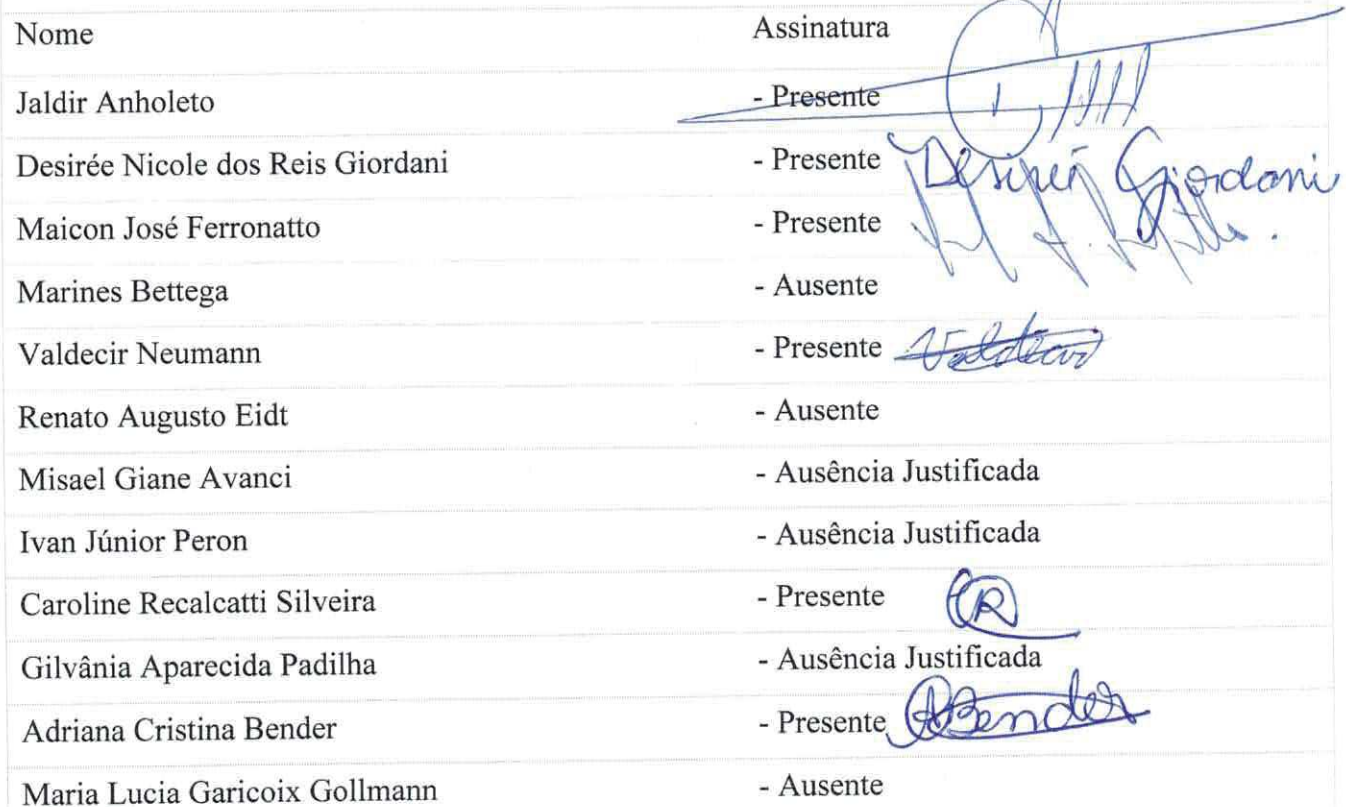 Nome Assinatura
Jaldir Anholeto - Presente
Desirée Nicole dos Reis Giordani - Presente Desireé Giordani
Maicon José Ferronatto - Presente
Marines Bettega - Ausente
Valdecir Neumann - Presente Valdecir
Renato Augusto Eidt - Ausente
Misael Giane Avanci - Ausência Justificada
Ivan Júnior Peron - Ausência Justificada
Caroline Recalcatti Silveira - Presente
Gilvânia Aparecida Padilha - Ausência Justificada
Adriana Cristina Bender - Presente ABender
Maria Lucia Garicoix Gollmann - Ausente